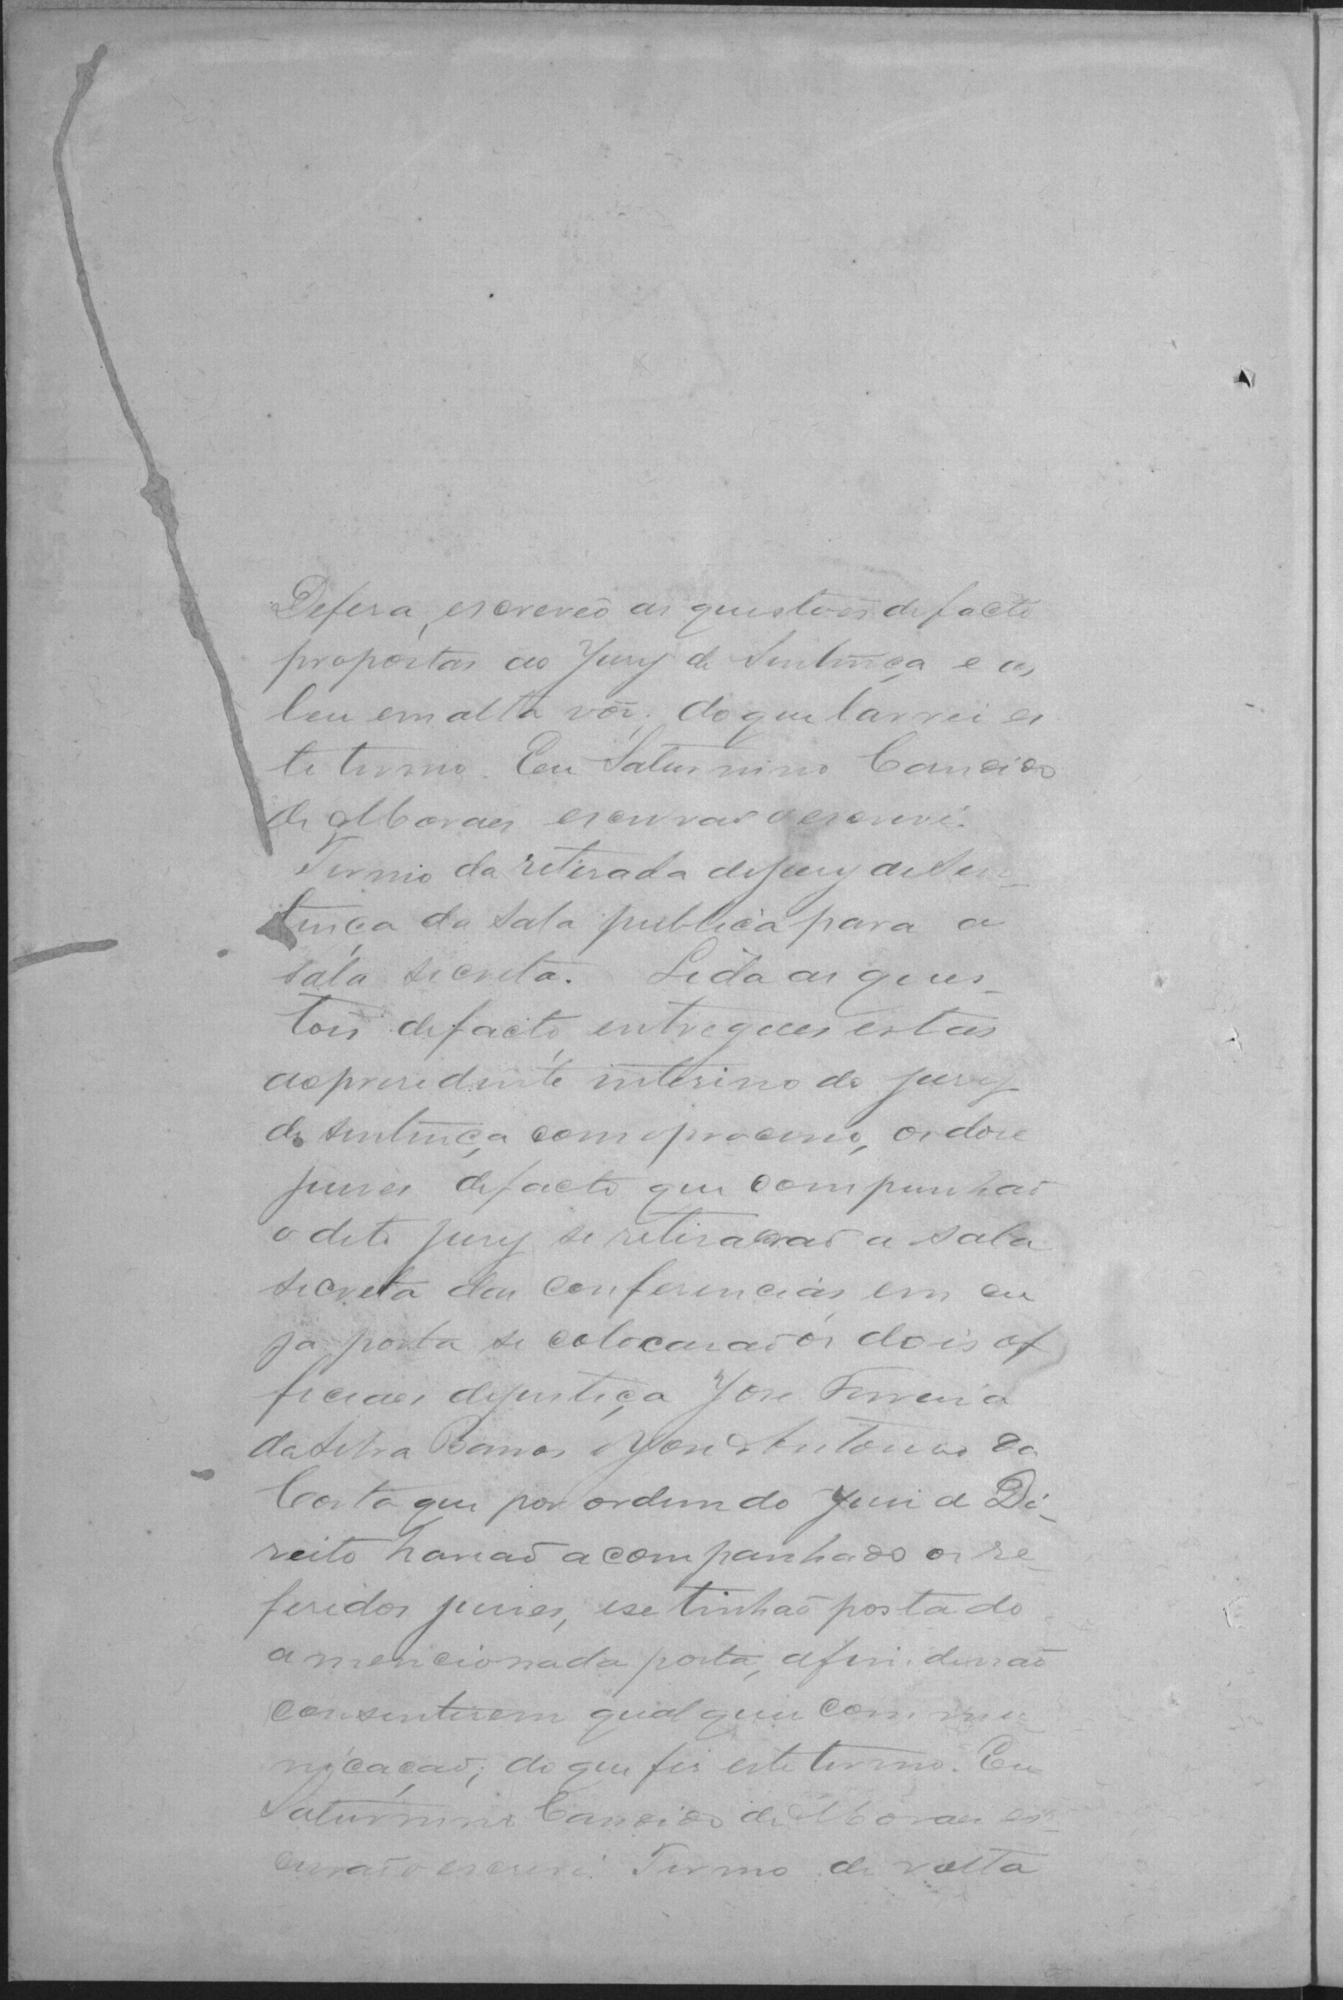 Defesa, escreveo as questoes de facto
propostas ao Jury de Sentença e as
leu em alta vóz, do que lavrei es
te termo. Eu Saturnino Candido
de Moraes escrivão o escrevi.
Termo da retirada do jury de Sen_
tença da sala publica para a
sala secreta. Lida as ques_
toes de facto, entregues estas
ao presidente interino do jury
de sentença com o processo, os doze
juizes de facto que compunhaõ
o dito jury se retiraraõ a sala
secreta das conferencias, em cu
ja porta se colocaraõ os dois of
ficiaes de justiça José Ferreira
da Silva Barros e José Antonio da
Costa que por ordem do Juiz de Di_
reito haviaõ acompanhado os re_
feridos juizes, e se tinhaõ postado
a mencionada porta, afim de naõ
consentirem qualquer commu_
nicaçaõ; do que fiz este termo. Eu
Saturnino Candido de Moraes es_
crivaõ o escrevi. Termo de volta